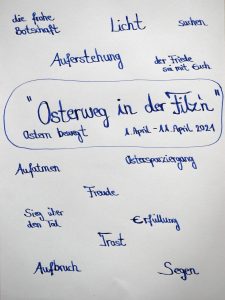 die frohe Botschaft
Licht
suchen
Auferstehung
der Friede sei mit Euch
"Osterweg in der Filz'n"
Ostern bewegt 1. April - 11. April 2021
Aufatmen
Osterspaziergang
Freude
Sieg über den Tod
Erfüllung
Trost
Aufbruch
Segen